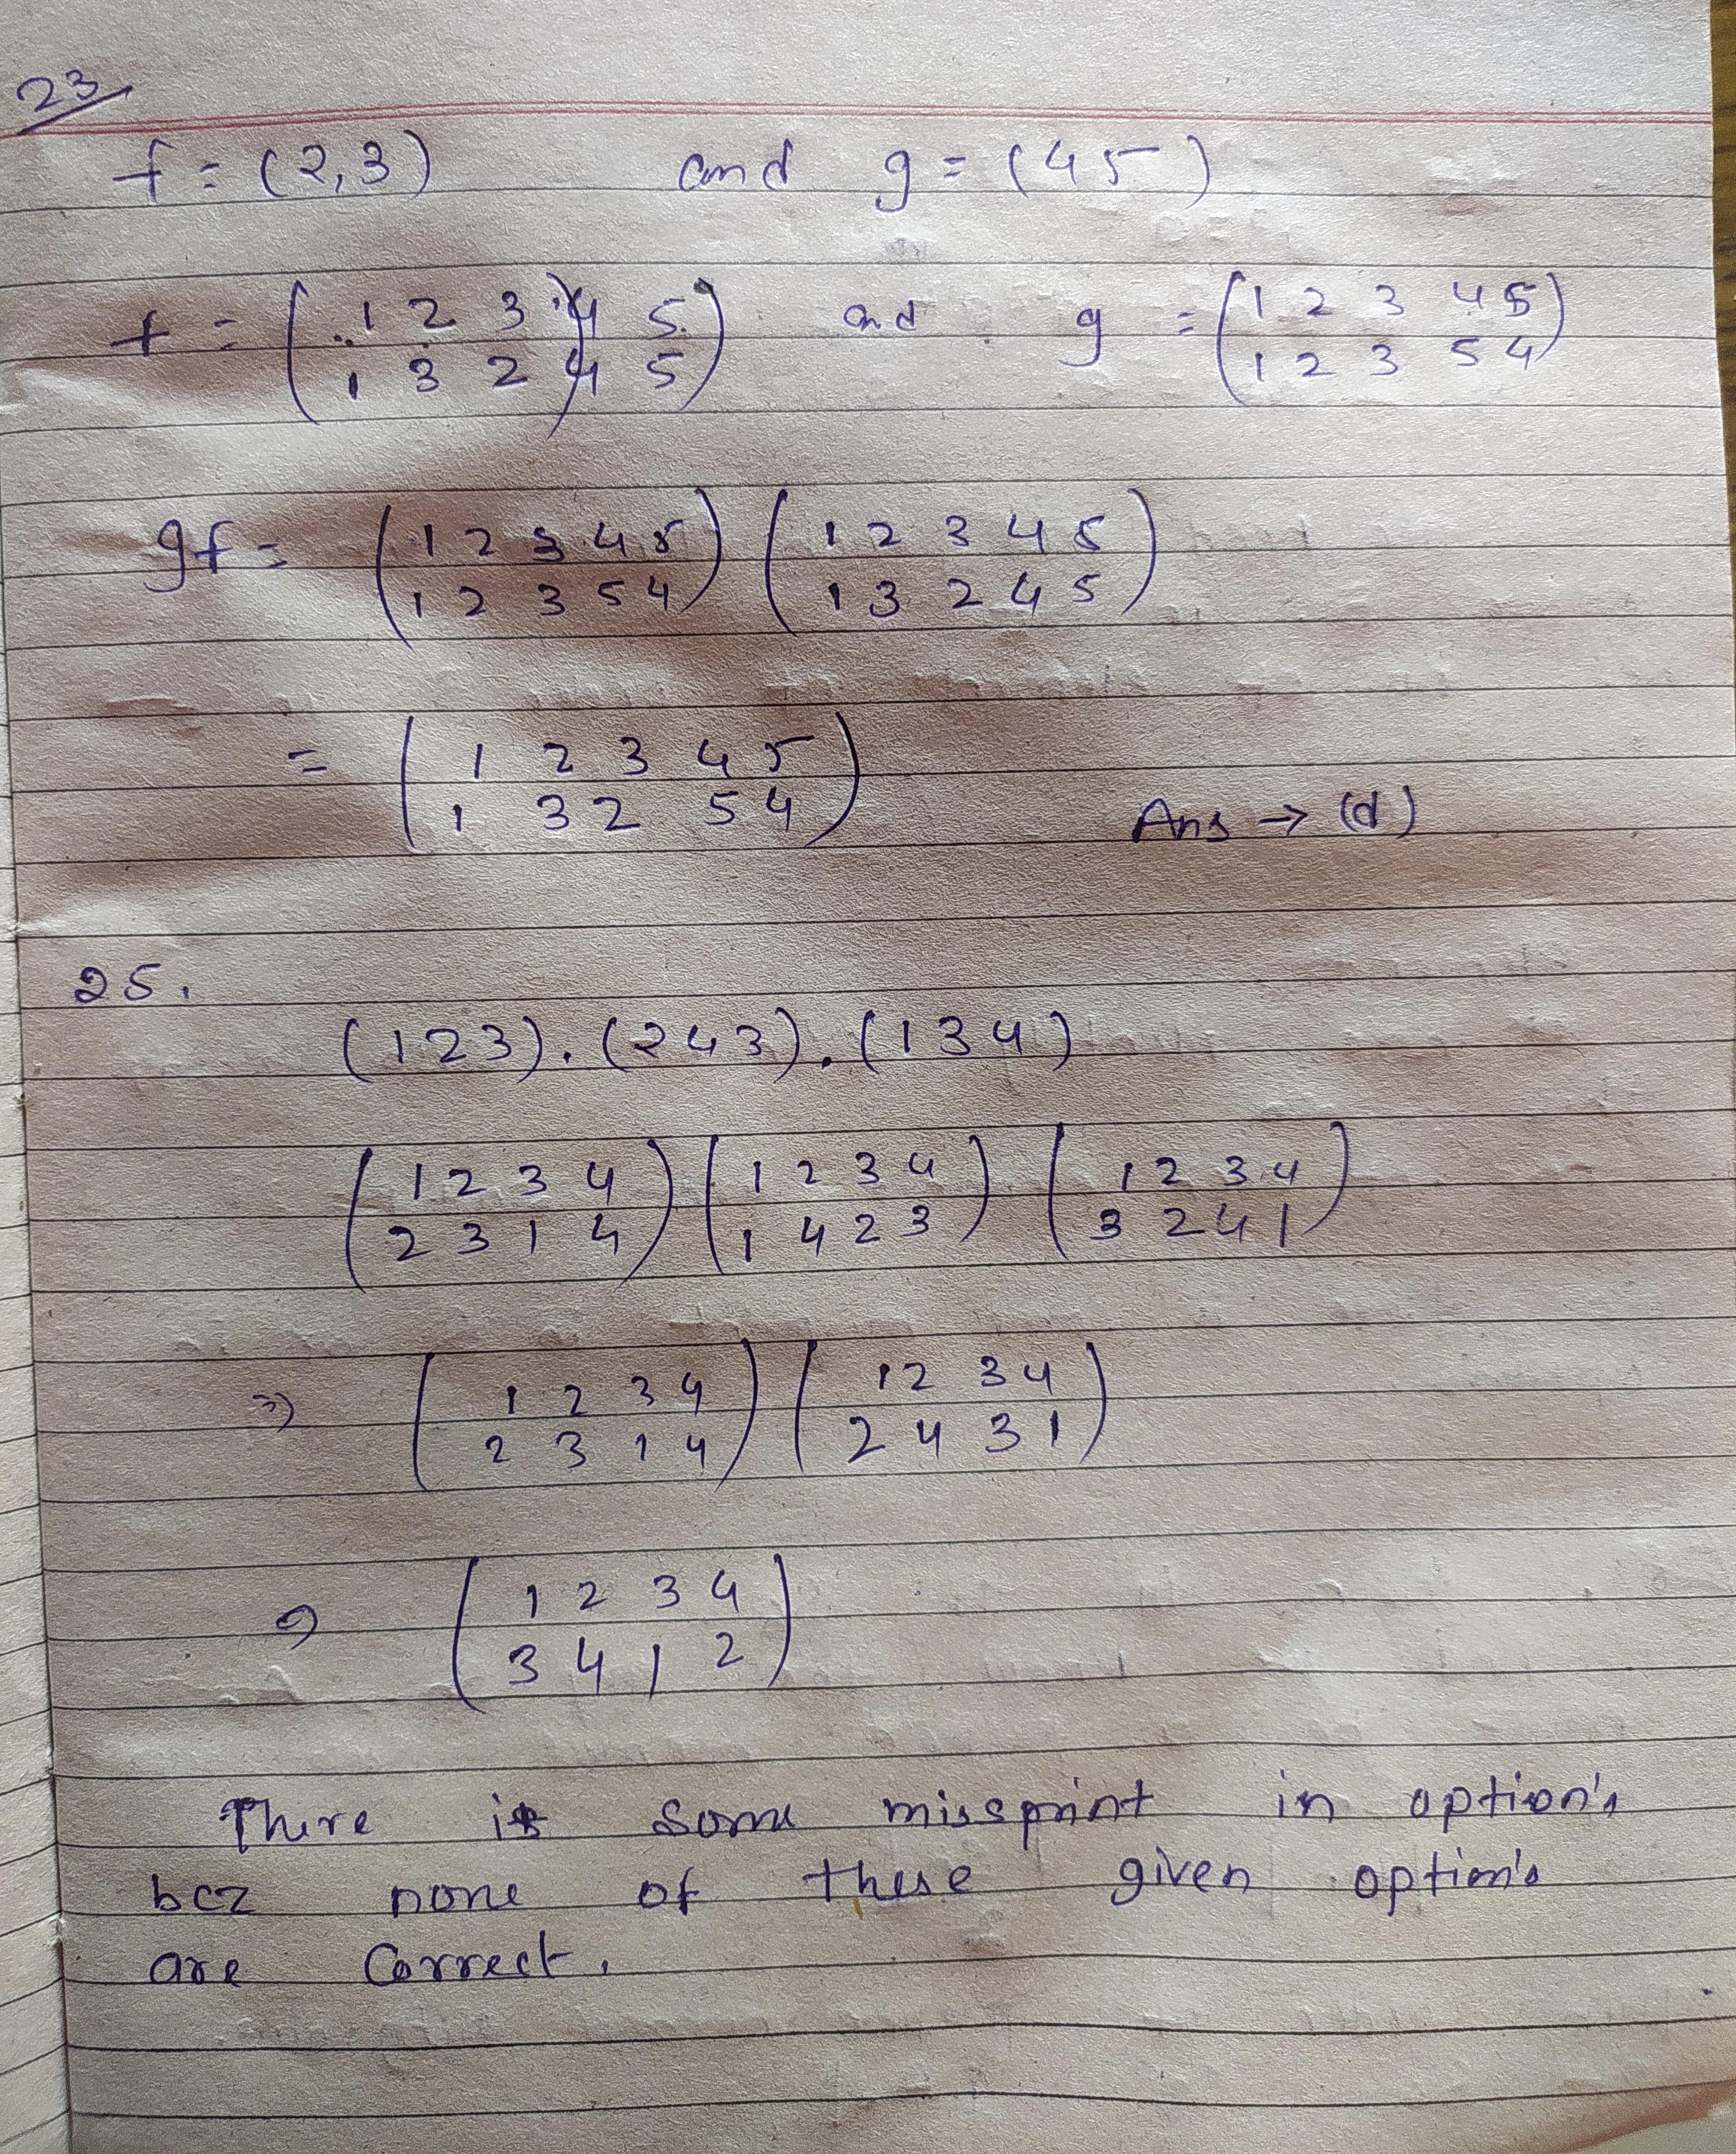 23
f = (2,3) and g = (4 5)
f = ( 1 2 3 4 5 ) and g = ( 1 2 3 4 5 )
1 3 2 4 5 1 2 3 5 4
gf = ( 1 2 3 4 5 ) ( 1 2 3 4 5 )
1 2 3 5 4 1 3 2 4 5
= ( 1 2 3 4 5 )
1 3 2 5 4
Ans → (d)
25.
(1 2 3) . (2 4 3) . (1 3 4)
( 1 2 3 4 ) ( 1 2 3 4 ) ( 1 2 3 4 )
2 3 1 4 1 4 2 3 3 2 4 1
⇒ ( 1 2 3 4 ) ( 1 2 3 4 )
2 3 1 4 2 4 3 1
( 1 2 3 4 )
3 4 1 2
There is some missprint in option's
bcz none of these given option's
are Correct.